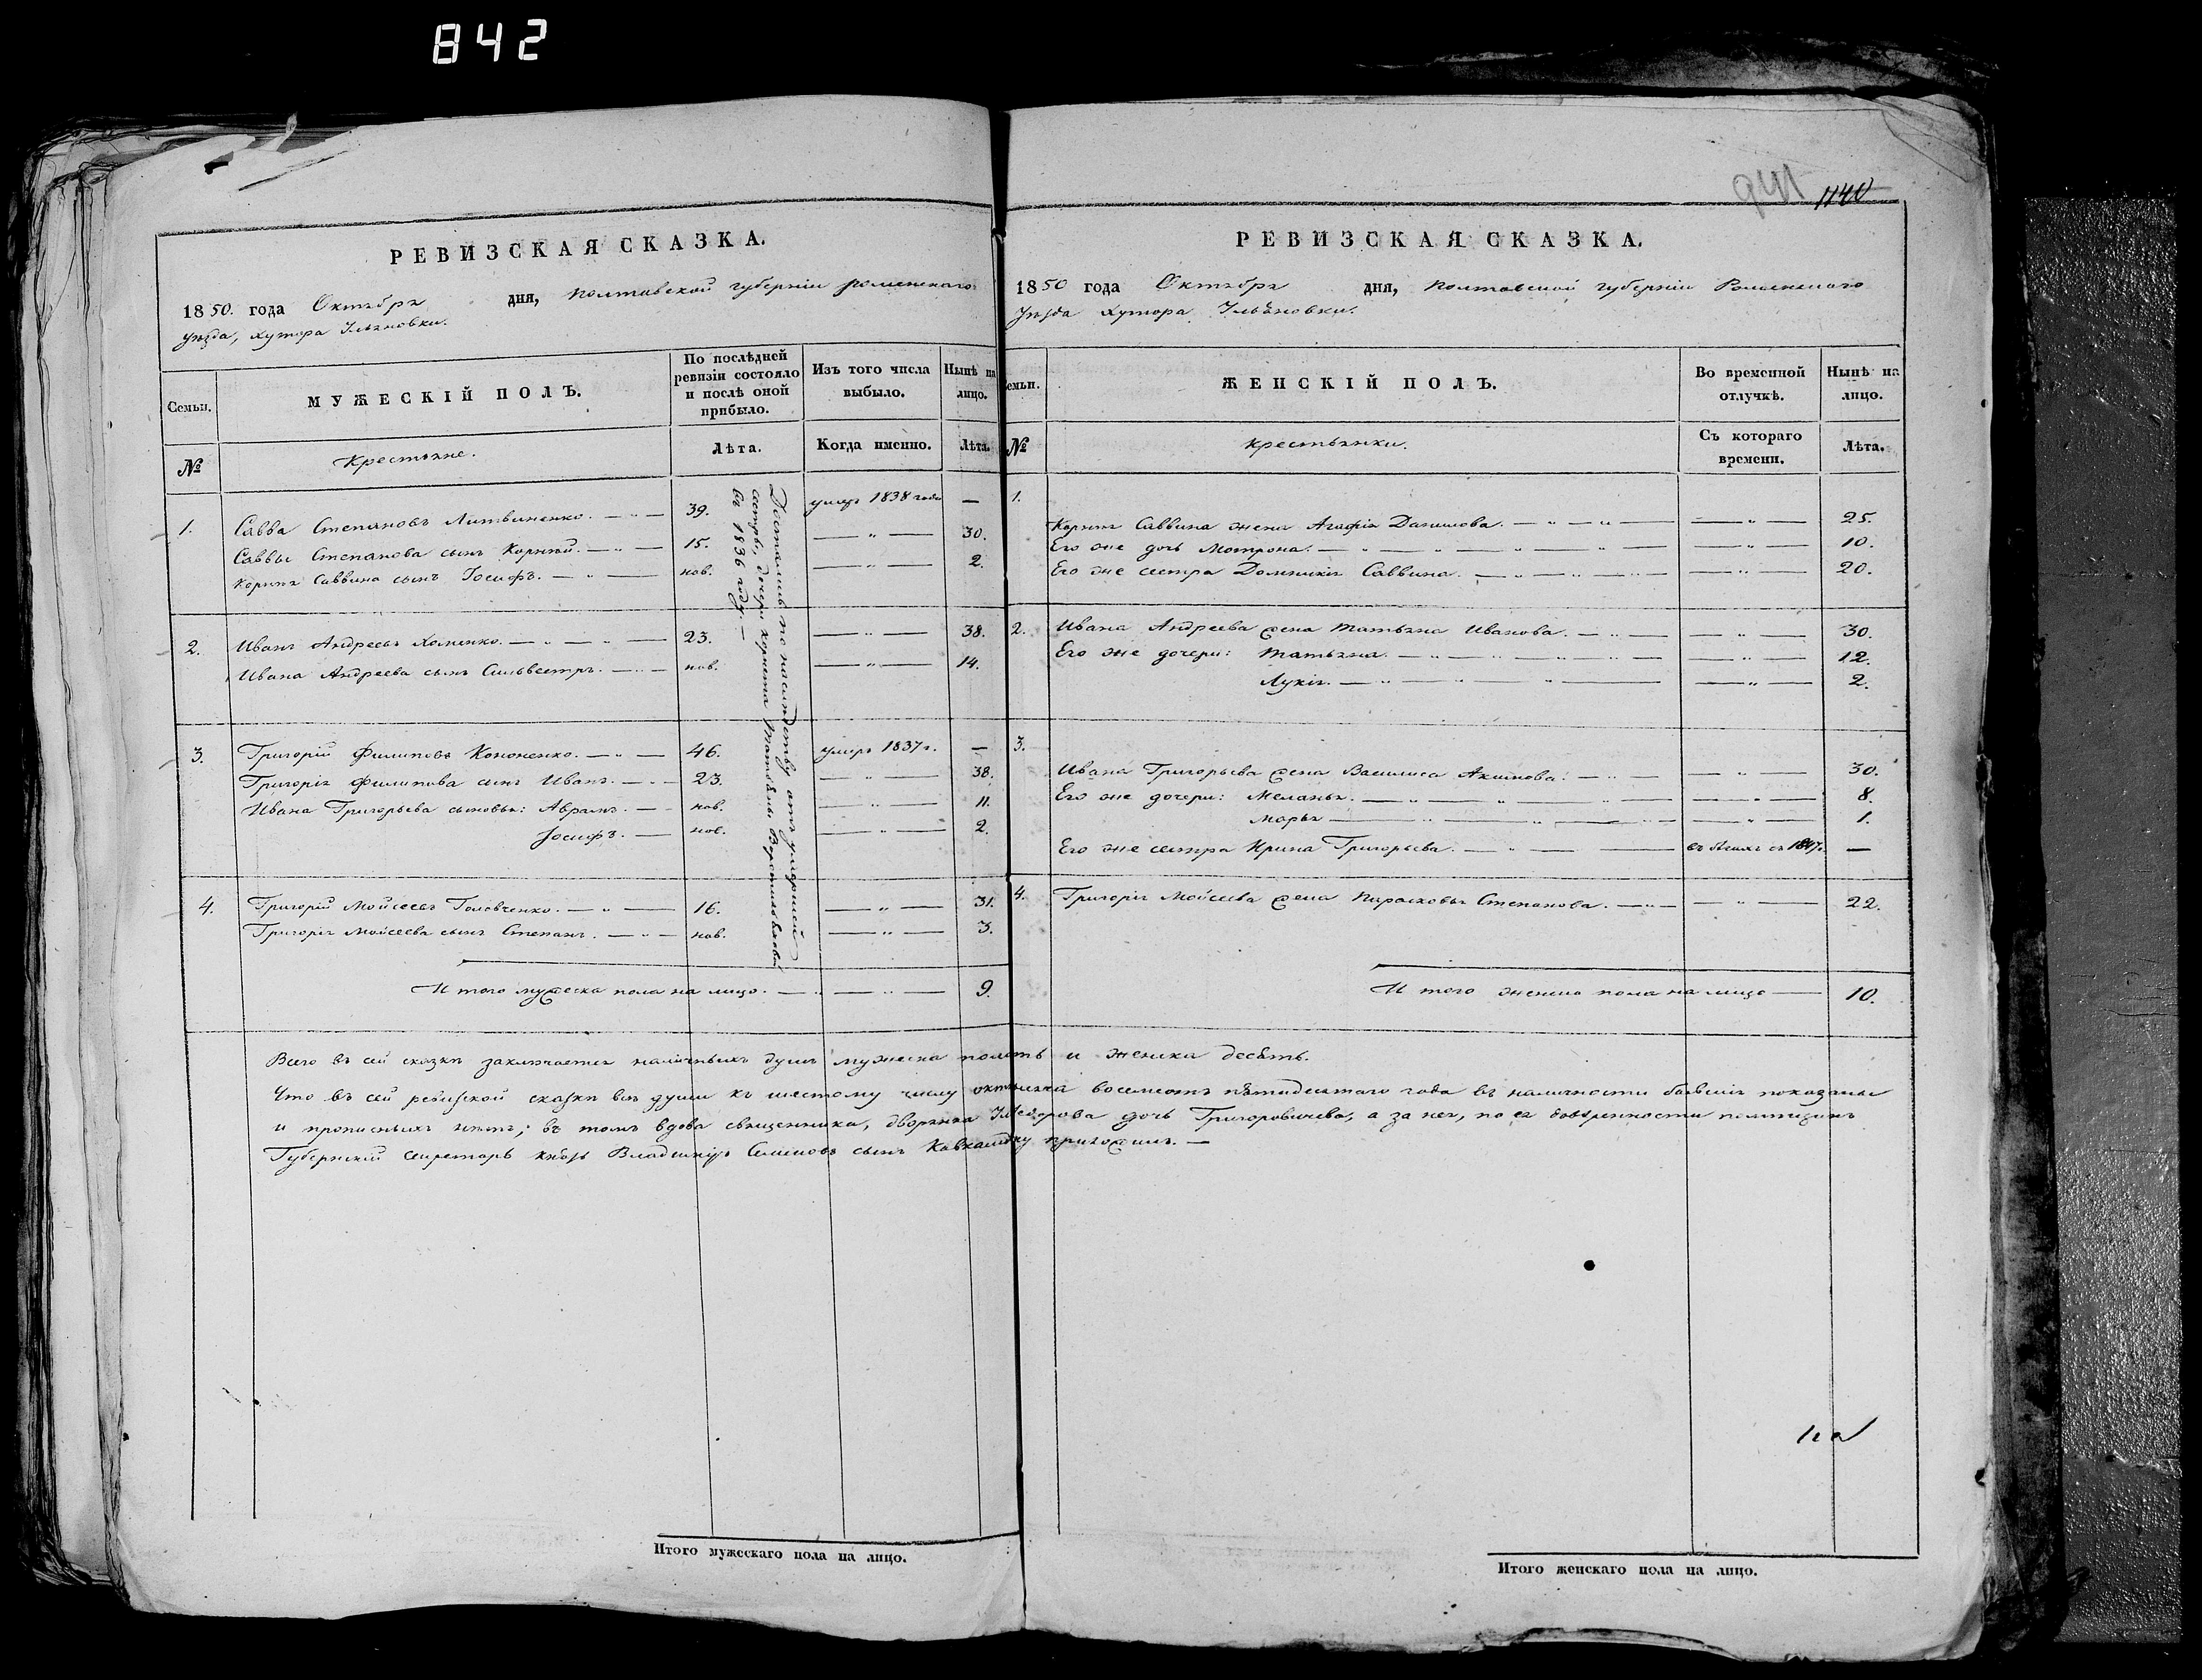 842
941 1140
РЕВИЗСКАЯ СКАЗКА.
1850. года Октября дня, Полтавской губерніи роменскаго
уѣзда, хутора Ильяновки.
Семьи. МУЖЕСКІЙ ПОЛЪ. По послѣдней ревизіи состояло и послѣ оной прибыло. Изъ того числа выбыло. Нынѣ на лицо.
№ Крестьяне. Лѣта. Когда именно. Лѣта.
1. Савва Степановъ Литвиненко. — „ — 39. умеръ 1838 года —
Саввы Степанова сынъ Корнѣй. — „ — 15. — „ — 30.
Корнѣя Саввина сынъ Іосифъ. — „ — нов. — „ — 2.
2. Иванъ Андреевъ Хоменко. — „ — „ — 23. — „ — 38.
Ивана Андреева сынъ Сильвестръ. — „ — нов. — „ — 14.
3. Григорій Филиповъ Кононенко. — „ — 46. умеръ 1837 г. —
Григорія Филипова сынъ Иванъ. — „ — 23. — „ — 38.
Ивана Григорьева сыновья: Авраамъ. — нов. — „ — 11.
Іосифъ. — нов. — „ — 2.
4. Григорій Мойсеевъ Головченко. — „ — 16. — „ — 31.
Григорія Мойсеева сынъ Степанъ. — „ — нов. — „ — 3.
Достались по наслѣдству отъ умершей
сестры, дочери корнета Татьяны
въ 1836 году. —
И того мужеска пола на лицо. — „ — „ — 9.
РЕВИЗСКАЯ СКАЗКА.
1850 года Октября дня, Полтавской губерніи Роменскаго
уѣзда хутора Ильяновки.
Семьи. ЖЕНСКІЙ ПОЛЪ. Во временной отлучкѣ. Нынѣ на лицо.
№ Крестьянки. Съ котораго времени. Лѣта.
1. Корнѣя Саввина жена Агафія Данилова. — „ — „ — — „ — 25.
Его же дочь Мотрона. — „ — „ — „ — — „ — 10.
Его же сестра Домникія Саввина. — „ — „ — — „ — 20.
2. Ивана Андреева жена Татьяна Иванова. — „ — — „ — 30.
Его же дочери: Татьяна. — „ — „ — „ — — „ — 12.
Лукія. — „ — „ — — „ — 2.
3. Ивана Григорьева жена Василиса Акимова. — „ — — „ — 30.
Его же дочери: Меланья. — „ — „ — „ — — „ — 8.
Марья — „ — „ — — „ — 1.
Его же сестра Ирина Григорьева. — „ — въ бѣгахъ съ 1847г. —
4. Григорія Мойсеева жена Парасковья Степанова. — „ — — „ — 22.
И того женска пола на лицо — 10.
Всего въ сей сказкѣ заключается наличныхъ душъ мужеска и женска десять.
Что въ сей ревизской сказкѣ всѣ души къ шестому числу октября восемсотъ пятидесятаго года въ наличности бывшія показаны
и прописныхъ нѣтъ; въ томъ вдова священника, дворянка дочь Григоровичева, а за нея, по ея довѣренности помѣщикъ
Губернскій секретарь князь Владиміръ Семеновъ сынъ руку приложилъ. —
Итого мужескаго пола на лицо.
Итого женскаго пола на лицо.